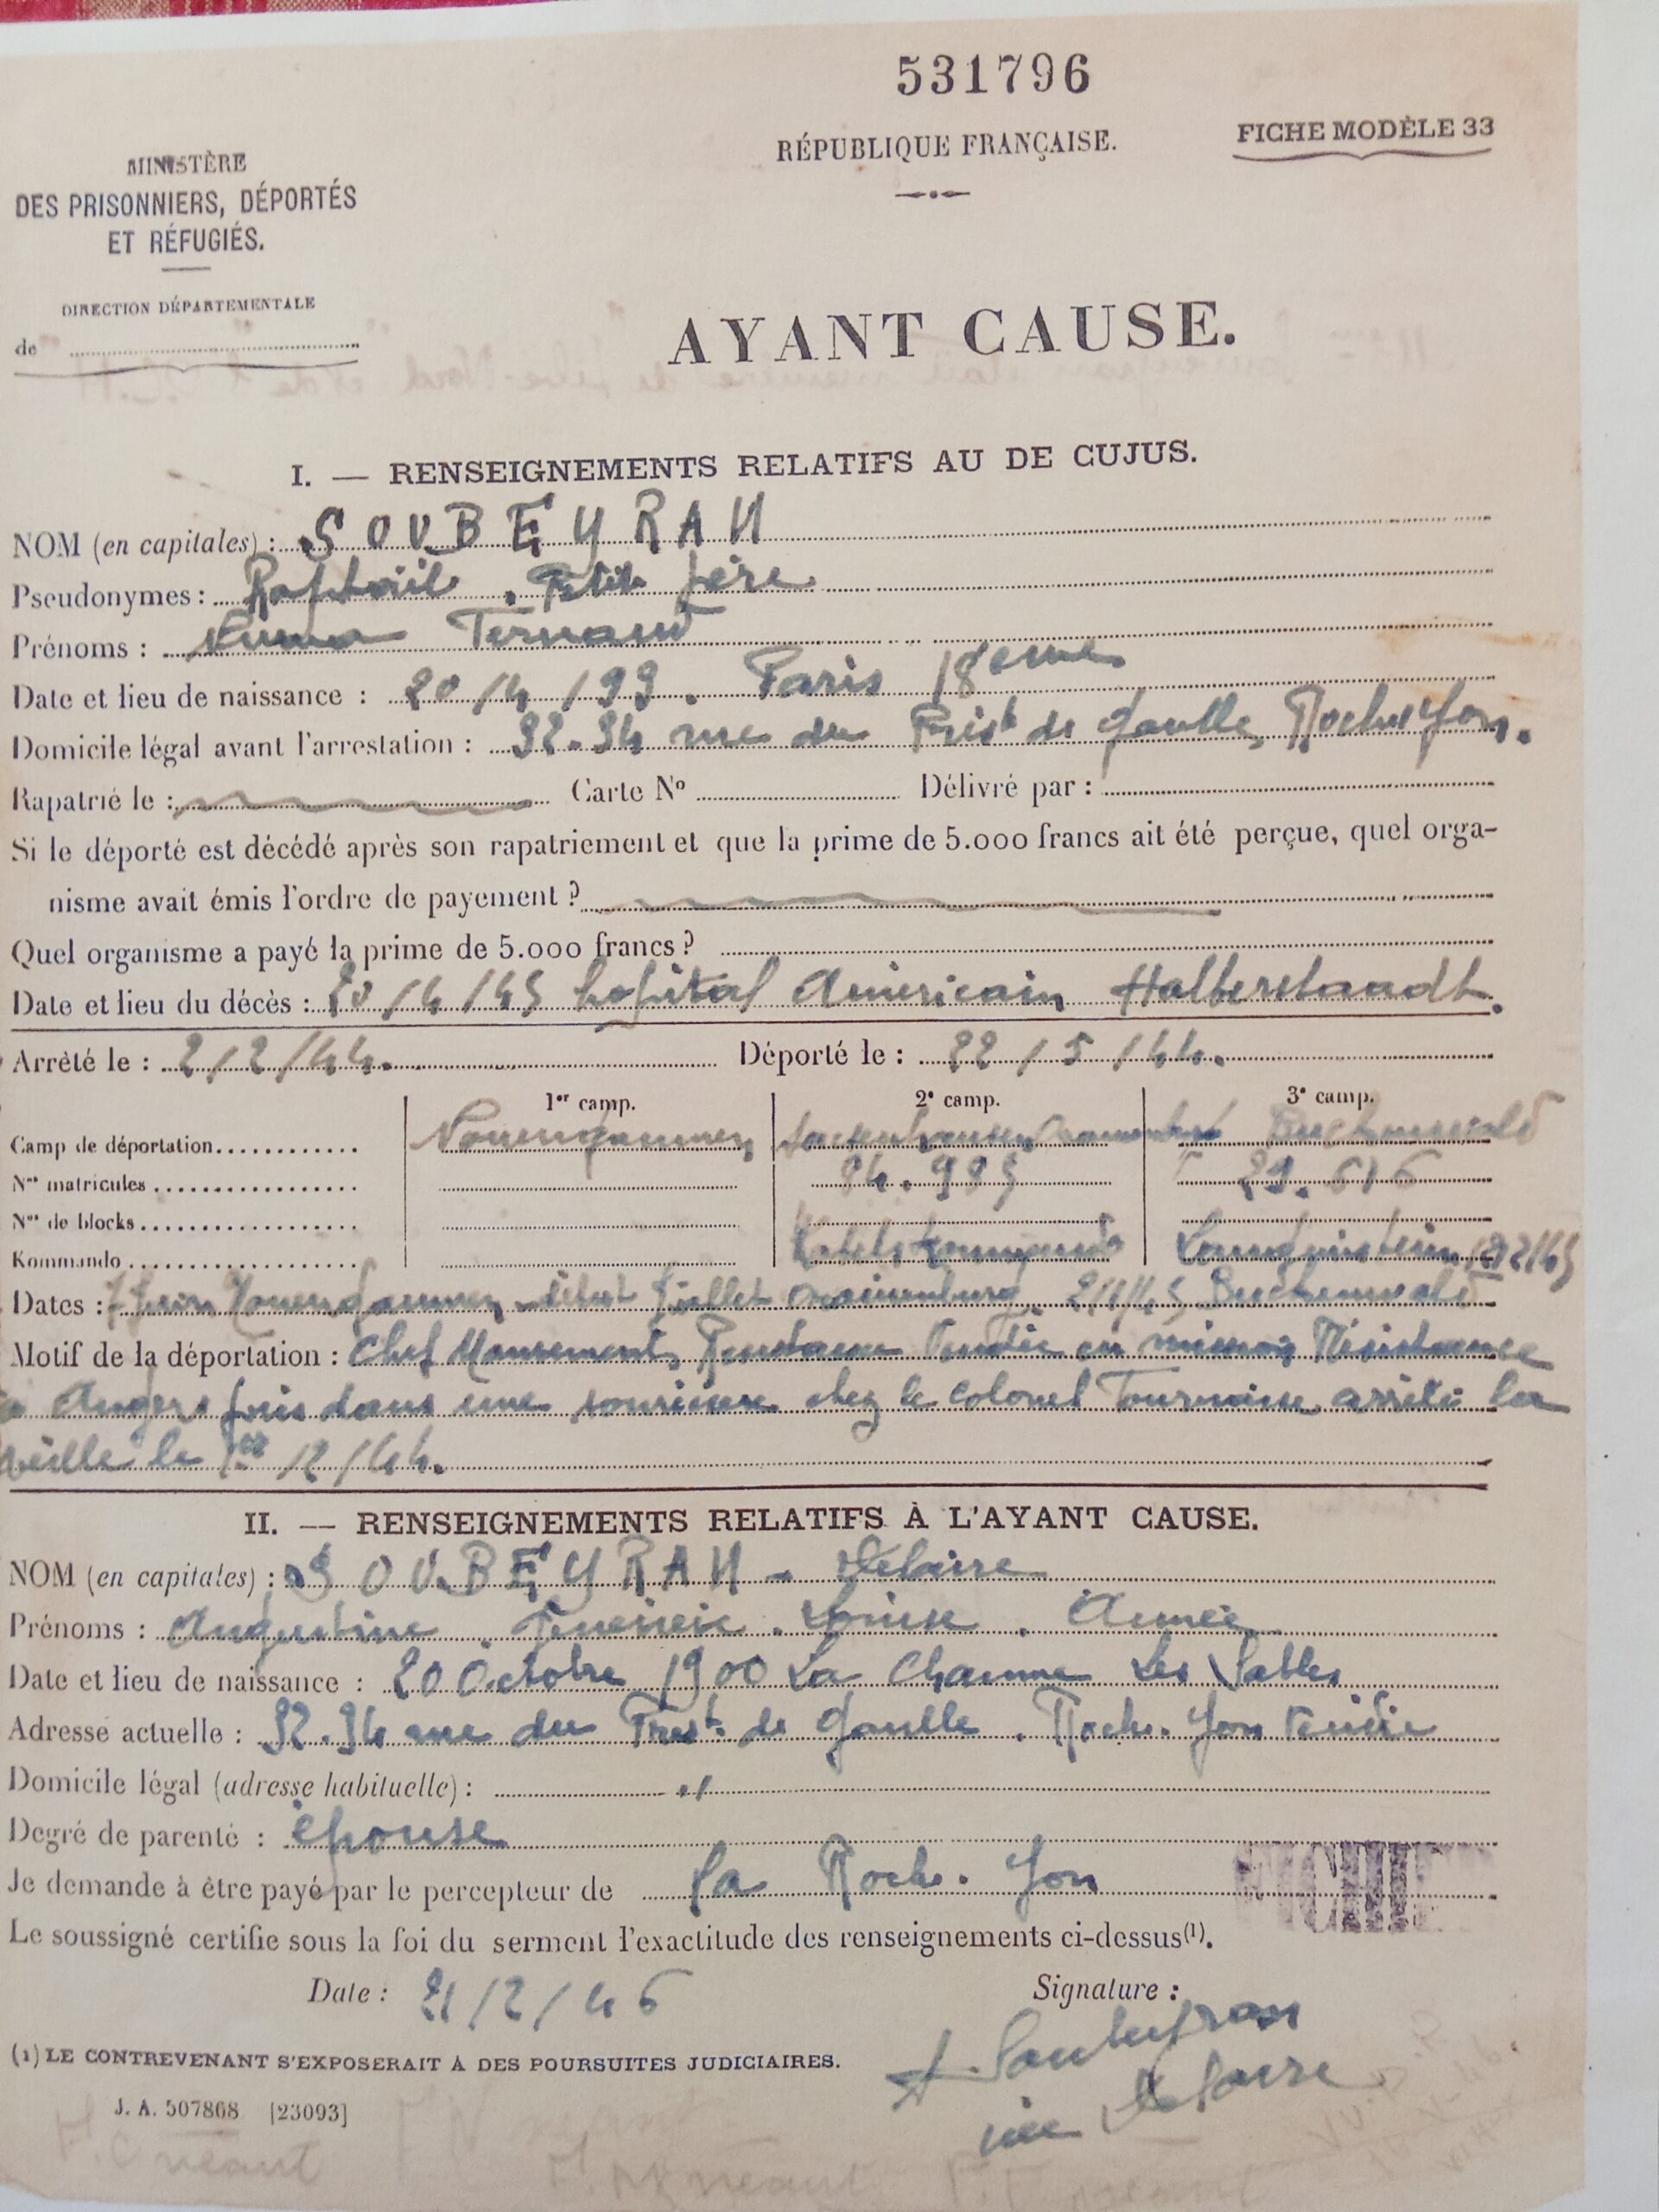 531796
RÉPUBLIQUE FRANÇAISE.
FICHE MODÈLE 33
MINISTÈRE
DES PRISONNIERS, DÉPORTÉS
ET RÉFUGIÉS.
DIRECTION DÉPARTEMENTALE
de
AYANT CAUSE.
I. — RENSEIGNEMENTS RELATIFS AU DE CUJUS.
NOM (en capitales) : SOUBEYRAN
Pseudonymes : Raphaël. Petit père.
Prénoms : Numa Fernand
Date et lieu de naissance : 20/4/99. Paris 18eme
Domicile légal avant l'arrestation : 92.94 rue du Prest de Gaulle, Roche Yon.
Rapatrié le : Carte No Délivré par :
Si le déporté est décédé après son rapatriement et que la prime de 5.000 francs ait été perçue, quel orga-
nisme avait émis l'ordre de payement ?
Quel organisme a payé la prime de 5.000 francs ?
Date et lieu du décès : /4/45 hopital Américain Halberstaadt.
Arrêté le : 2/2/44. Déporté le : 22/5/44.
1er camp. 2e camp. 3e camp.
Camp de déportation Neuengammen Buchenwald
Nos matricules 84.995 29.616
Nos de blocks
Kommando
Dates : Juin Neuengammen début juillet Buchenwald
Motif de la déportation : Chef Mouvement, Résistance Vendée en mission Résistance
à Angers pris dans une souricière chez le Colonel arrêté la
veille le 1er/2/44.
II. — RENSEIGNEMENTS RELATIFS À L'AYANT CAUSE.
NOM (en capitales) : SOUBEYRAN - Delaire
Prénoms : Augustine. . Louise. Aimée
Date et lieu de naissance : 20 Octobre 1900 La Chaume Les Sables
Adresse actuelle : 92.94 rue du Prest. de Gaulle. Roche. Yon Vendée
Domicile légal (adresse habituelle) : "
Degré de parenté : épouse
Je demande à être payé par le percepteur de la Roche. Yon
FICHE
Le soussigné certifie sous la foi du serment l'exactitude des renseignements ci-dessus(1).
Date : 21/2/46 Signature :
A. Soubeyran
née Delaire
(1) LE CONTREVENANT S'EXPOSERAIT À DES POURSUITES JUDICIAIRES.
J. A. 507868 [23093]